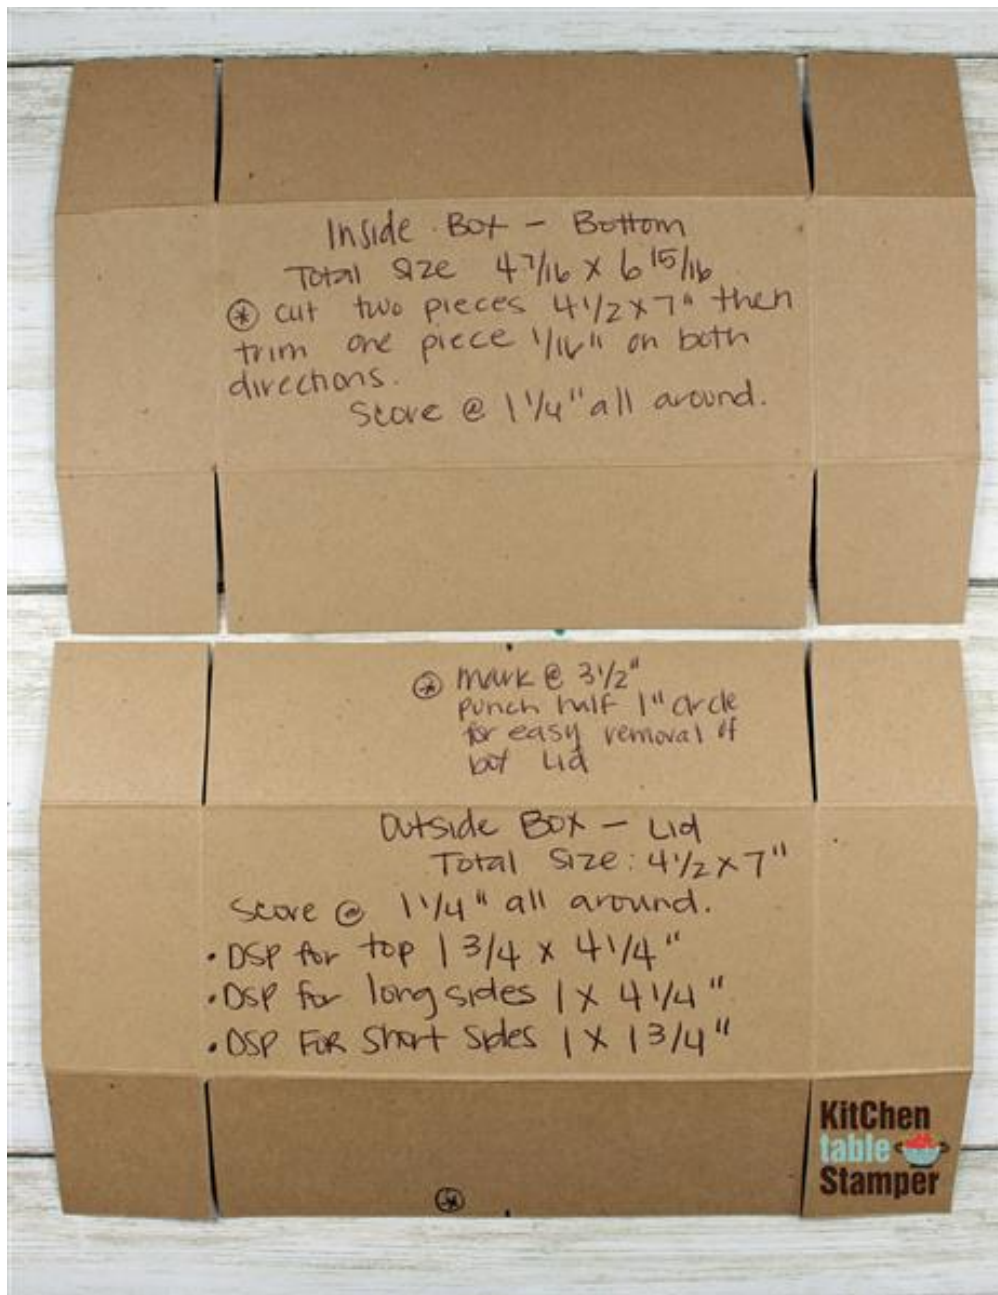 Inside Box - Bottom
Total Size 4 7/16 x 6 15/16
* cut two pieces 4 1/2 x 7" then
trim one piece 1/16" on both
directions.
Score @ 1 1/4" all around.
* mark @ 3 1/2"
punch half 1" circle
for easy removal of
box Lid
Outside Box - Lid
Total Size: 4 1/2 x 7"
Score @ 1 1/4" all around.
• DSP for top 1 3/4 x 4 1/4"
• DSP for long sides 1 x 4 1/4"
• DSP FOR Short Sides 1 x 1 3/4"
*
KitChen
table
Stamper